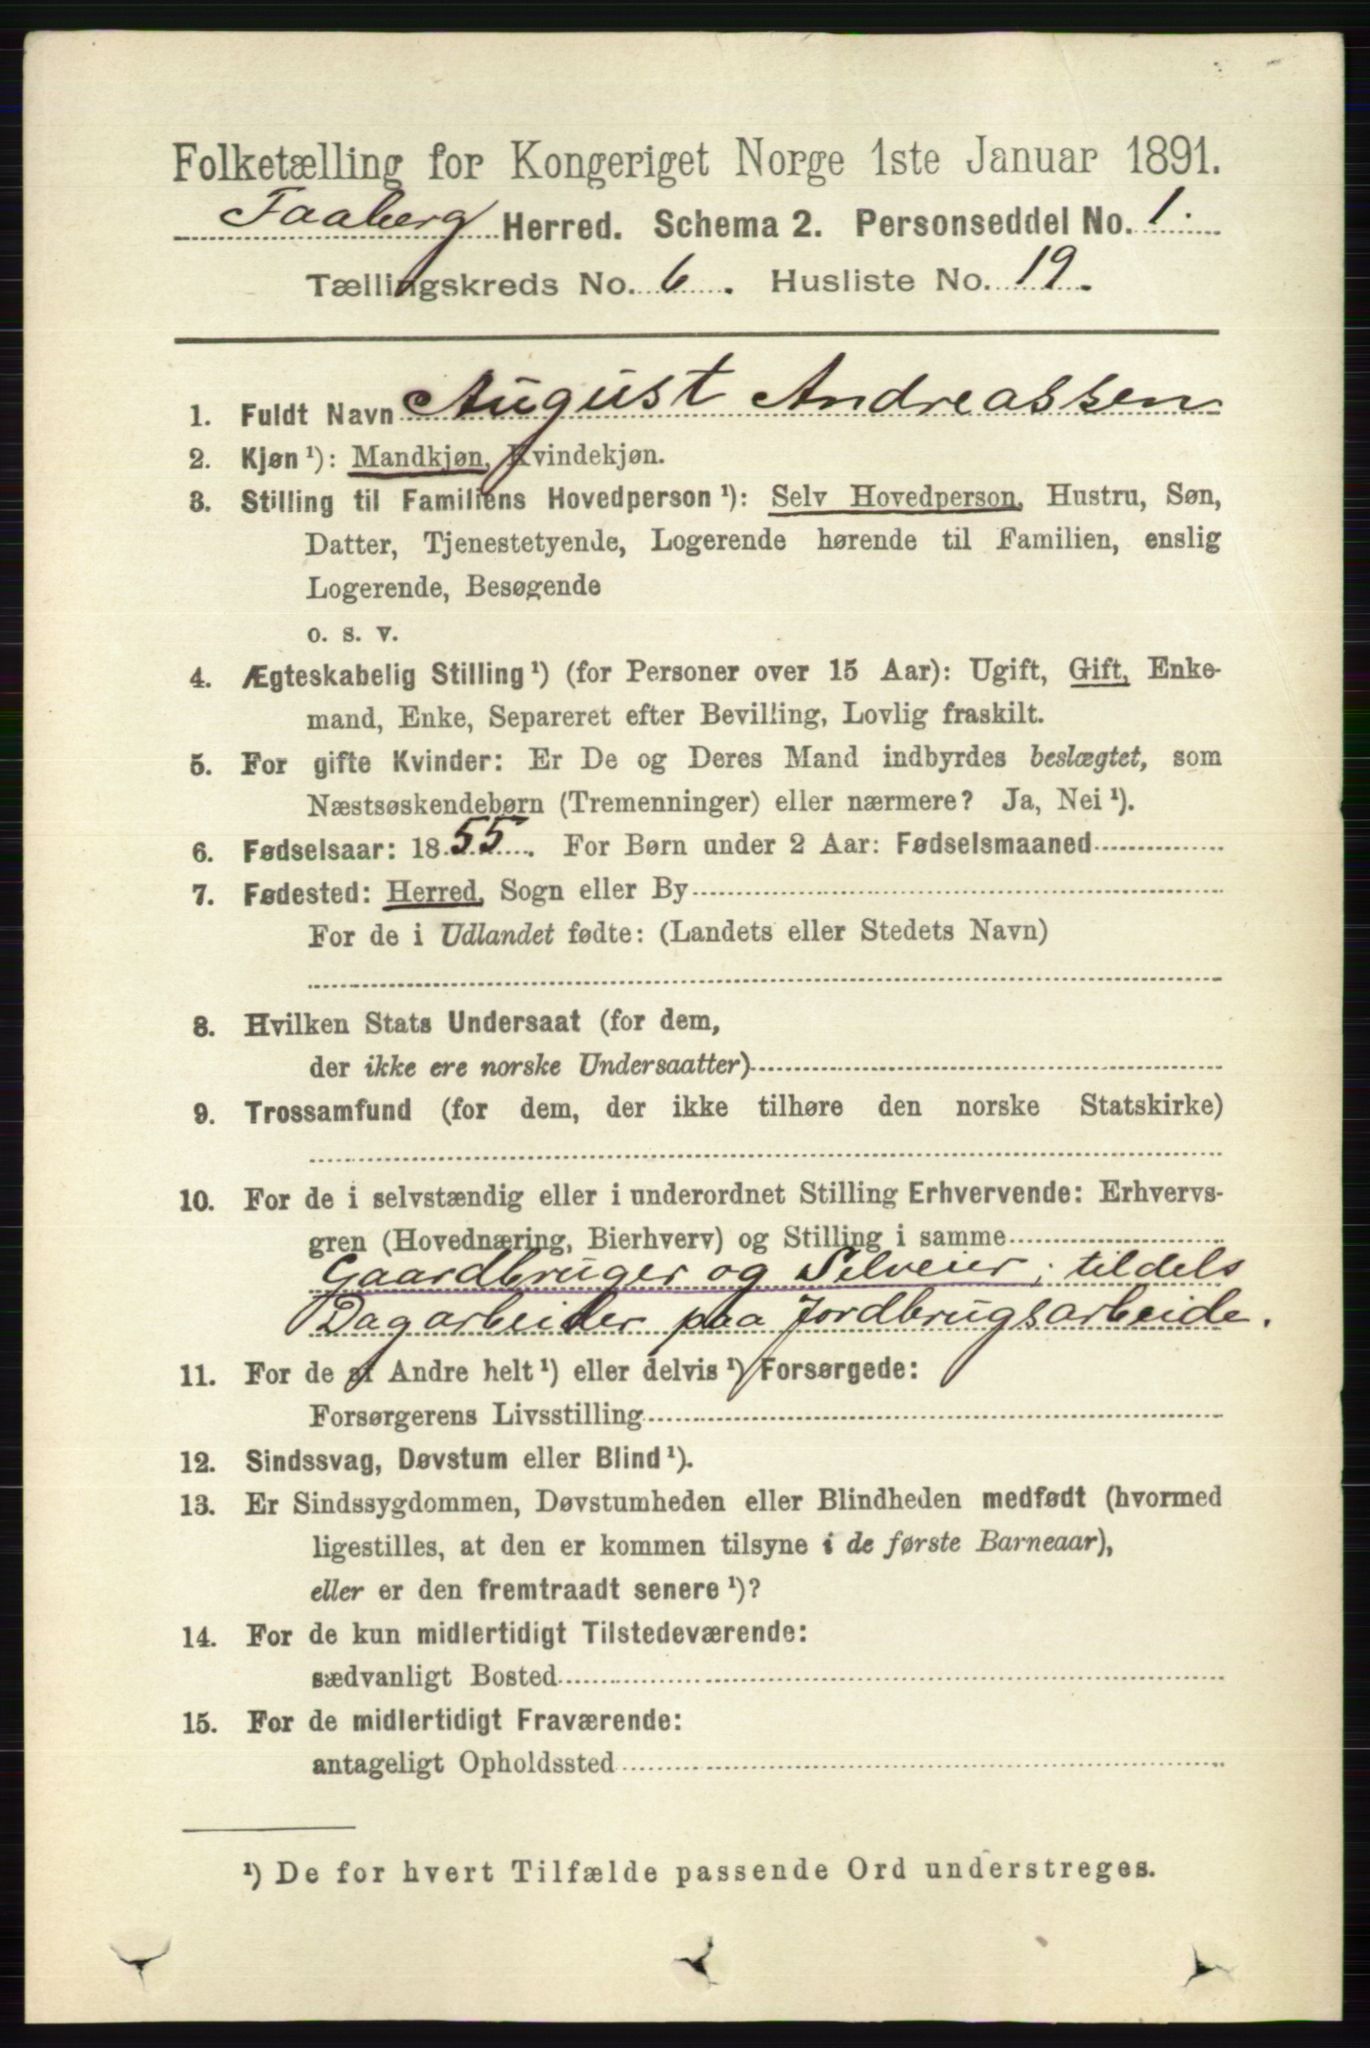 Folketælling for Kongeriget Norge 1ste Januar 1891.
Faaberg Herred. Schema 2. Personseddel No. 1.
Tællingskreds No. 6. Husliste No. 19.
1. Fuldt Navn August Andreassen
2. Kjøn ¹): Mandkjøn, Kvindekjøn.
3. Stilling til Familiens Hovedperson ¹): Selv Hovedperson, Hustru, Søn,
Datter, Tjenestetyende, Logerende hørende til Familien, enslig
Logerende, Besøgende
o. s. v.
4. Ægteskabelig Stilling ¹) (for Personer over 15 Aar): Ugift, Gift, Enke-
mand, Enke, Separeret efter Bevilling, Lovlig fraskilt.
5. For gifte Kvinder: Er De og Deres Mand indbyrdes beslægtet, som
Næstsøskendebørn (Tremenninger) eller nærmere? Ja, Nei ¹).
6. Fødselsaar: 1855. For Børn under 2 Aar: Fødselsmaaned
7. Fødested: Herred, Sogn eller By
For de i Udlandet fødte: (Landets eller Stedets Navn)
8. Hvilken Stats Undersaat (for dem,
der ikke ere norske Undersaatter)
9. Trossamfund (for dem, der ikke tilhøre den norske Statskirke)
10. For de i selvstændig eller i underordnet Stilling Erhvervende: Erhvervs-
gren (Hovednæring, Bierhverv) og Stilling i samme
Gaardbruger og Selveier; tildels
Dagarbeider paa Jordbrugsarbeide.
11. For de af Andre helt ¹) eller delvis ¹) Forsørgede:
Forsørgerens Livsstilling
12. Sindssvag, Døvstum eller Blind ¹).
13. Er Sindssygdommen, Døvstumheden eller Blindheden medfødt (hvormed
ligestilles, at den er kommen tilsyne i de første Barneaar),
eller er den fremtraadt senere ¹)?
14. For de kun midlertidigt Tilstedeværende:
sædvanligt Bosted
15. For de midlertidigt Fraværende:
antageligt Opholdssted
¹) De for hvert Tilfælde passende Ord understreges.